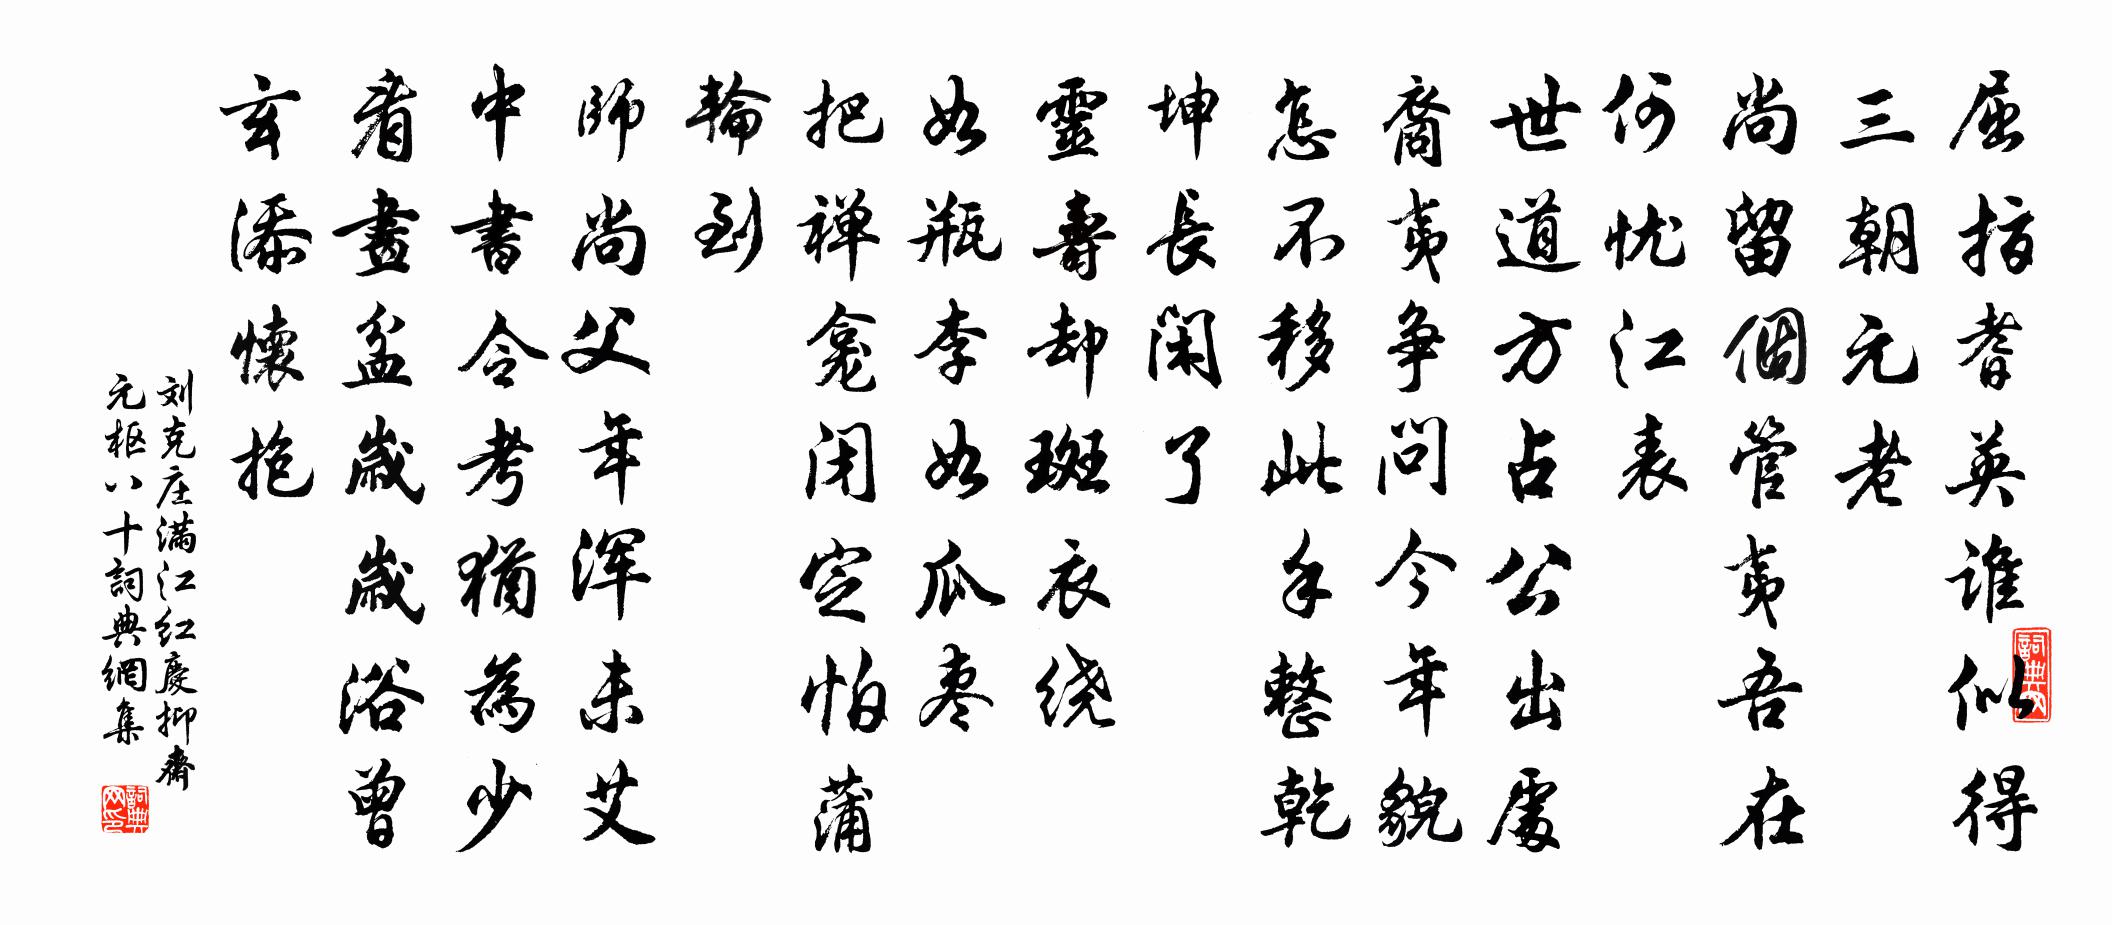 屈指耆英谁似得
三朝元老
尚留個管夷吾在
何忧江表
世道方占公出處
裔夷争问今年貌
怎不移此手整乾
坤長闲了
靈壽却斑衣绕
如瓶李如瓜枣
把禅龛闭定怕蒲
輪到
師尚父年浑未艾
中書令考猶為少
看畫盆歲歲浴曾
玄添懷抱
刘克庄满江红慶抑齋
元枢八十詞典網集
詞典网
詞典网印